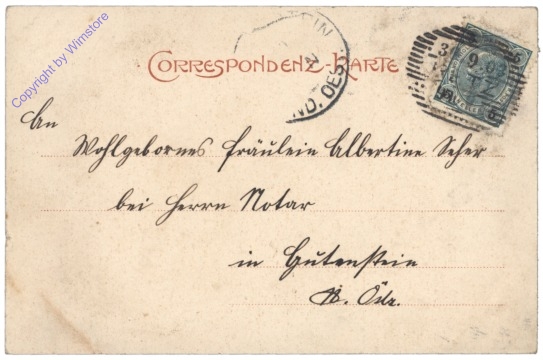 Copyright by Wimstore
CORRESPONDENZ-KARTE
An
Wohlgebornes Fräulein Albertine Seher
bei Herrn Notar
in Gutenstein
N. Öst.